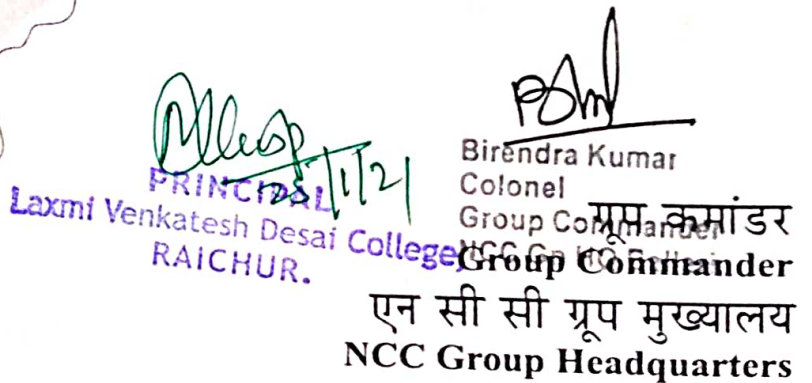 25/1/21
PRINCIPAL
Laxmi Venkatesh Desai College,
RAICHUR.
Birendra Kumar
Colonel
Group Commander
NCC Gp HQ
ग्रूप कमांडर
Group Commander
एन सी सी ग्रूप मुख्यालय
NCC Group Headquarters